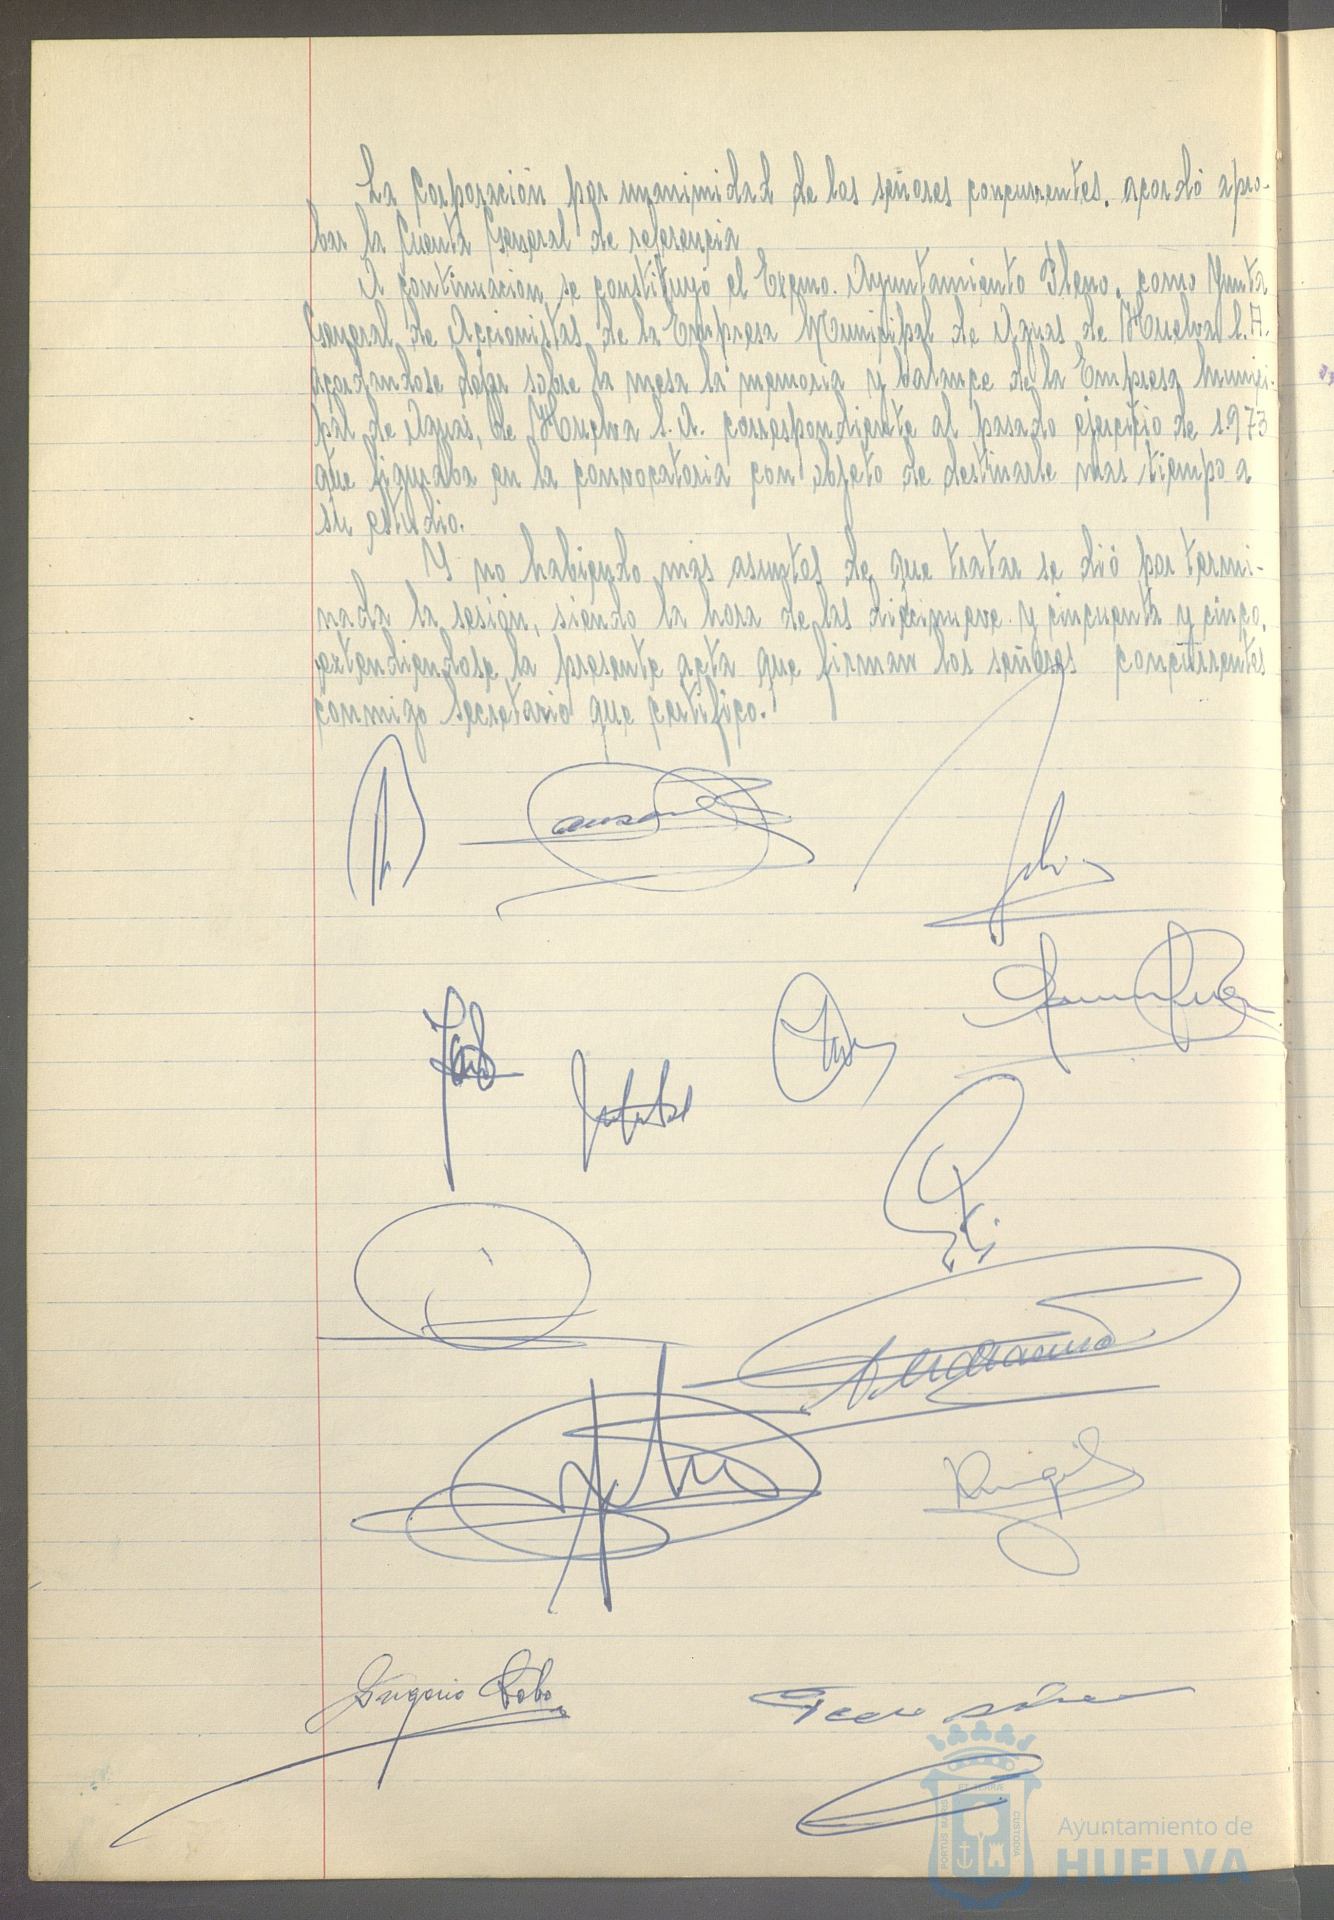 La Corporación por unanimidad de los señores concurrentes, acordó apro-
bar la Cuenta General de referencia
A continuación se constituyó el Excmo. Ayuntamiento Pleno, como Junta
General de Accionistas de la Empresa Municipal de Aguas de Huelva S.A.
acordandose dejar sobre la mesa la memoria y balance de la Empresa Munici-
pal de Aguas, de Huelva S.A. correspondiente al pasado ejercicio de 1973
que figuraba en la convocatoria con objeto de destinarle mas tiempo a
su estudio.
Y no habiendo más asuntos de que tratar se dió por termi-
nada la sesión, siendo la hora de las diecinueve y cincuenta y cinco,
extendiendose la presente acta que firman los señores concurrentes
conmigo Secretario que certifico.
PORTUS MARIS
ET TERRAE
CUSTODIA
Ayuntamiento de
HUELVA